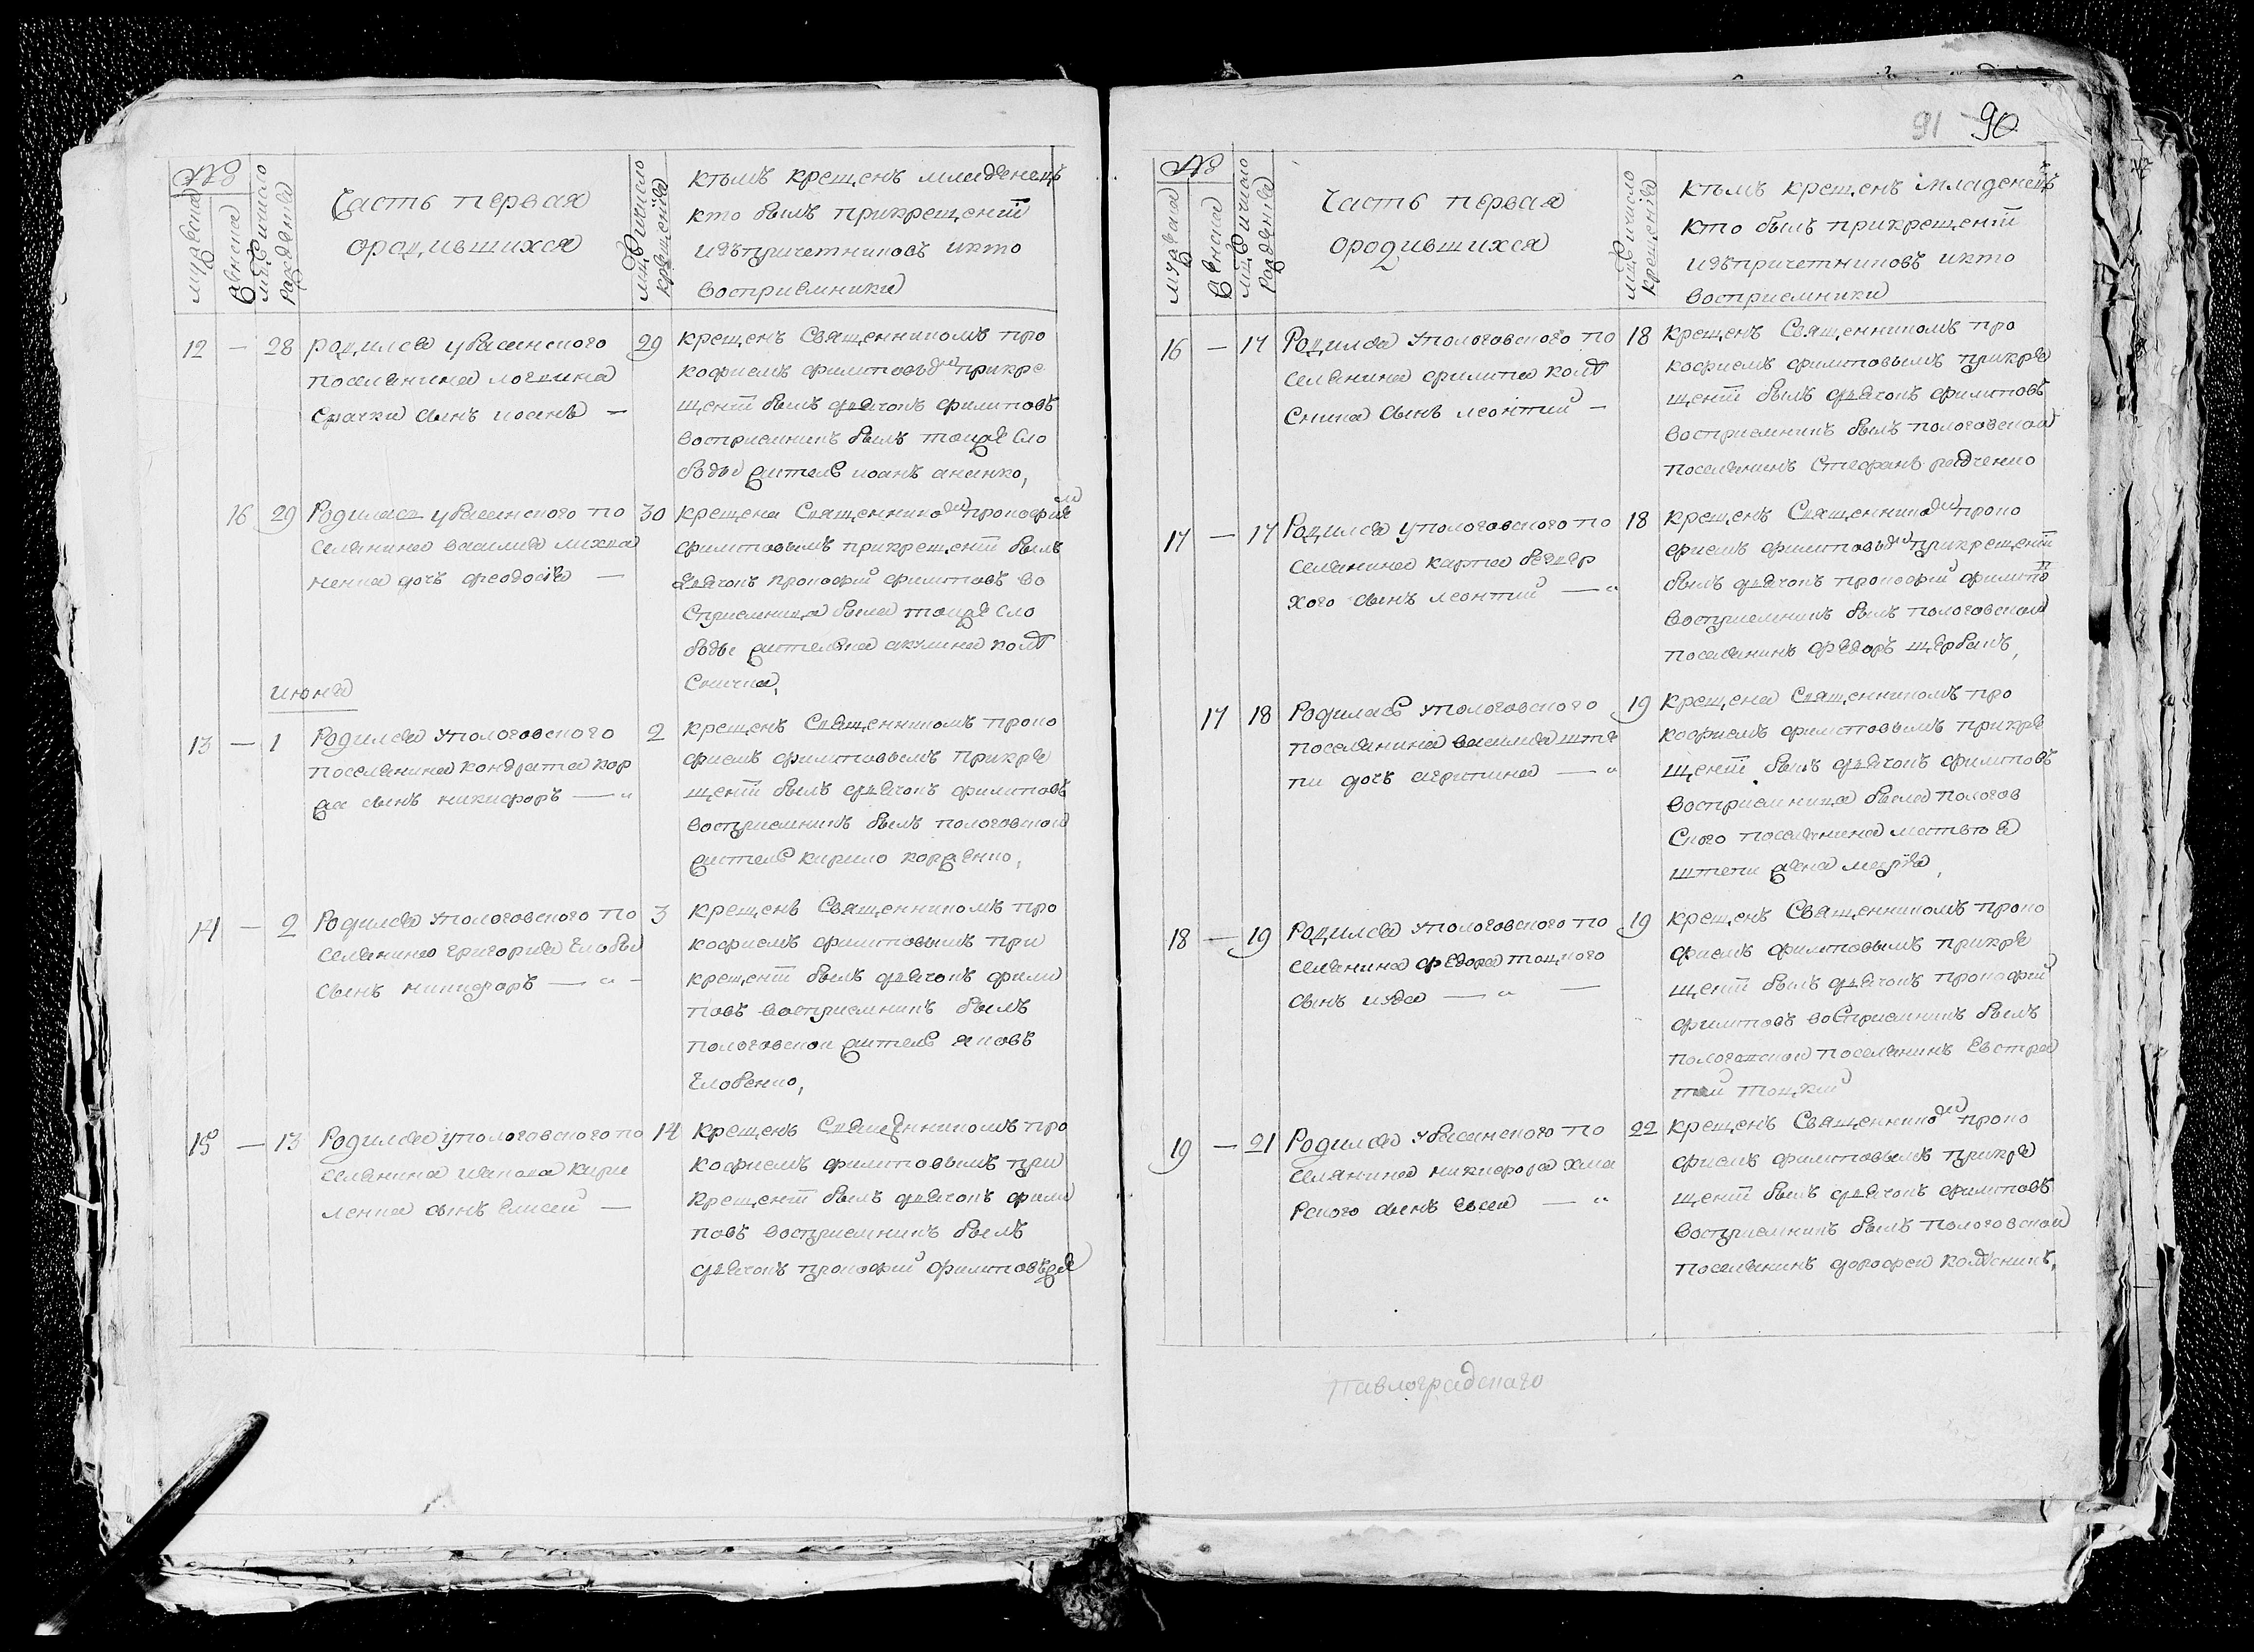 №
мужеска
женска
мцъ и число
рожденія
Часть первая
о родившихся
мцъ и число
крещенія
кѣмъ крещенъ младенецъ
кто былъ прикрещеніи
изъпричетниковъ икто
восприемники
12 — 28 родился убасанского
поселянина логвина
срачки сынъ иоанъ —
29 крещенъ Священникомъ про
кофиемъ филиповымъ прикре
щеніи былъ дьячокъ филиповъ
восприемникъ былъ тоцже сло
боды житель иоанъ ананко,
16 29 Родилась убасанского по
селянина василия михна
ненка дочъ феодосія —
30 крещена Священникомъ прокофием
филиповымъ прикрещеніи былъ
дьячокъ прокофий филиповъ во
сприемница была тоцже сло
боды жителка акулина колѣ
сничка,
июня
13 — 1 Родился упологовского
поселянина кондрата кор
жа сынъ никифоръ — "
2 крещенъ Священникомъ проко
фиемъ филиповымъ прикре
щеніи былъ дьячокъ филиповъ
восприемникъ былъ пологовской
житель кирило корженко,
14 — 2 Родился упологовского по
селянина григория глобы
сынъ никифоръ — " -
3 крещенъ Священникомъ про
кофиемъ филиповымъ при
крещеніи былъ дьячокъ фили
повъ восприемникъ былъ
пологовской житель яковъ
глобенко,
15 — 13 Родился упологовского по
селянина шапала кири
ленка сынъ елисей —
14 крещенъ Священникомъ про
кофиемъ филиповымъ при
крещеніи былъ дьячокъ фили
повъ восприемникъ былъ
дьячокъ прокофий филиповъже
91 90
№
мужеска
женска
мцъ и число
рожденія
Часть первая
ородившихся
мцъ и число
крещенія
кѣмъ крещенъ младенецъ
кто былъ прикрещеніи
изъпричетниковъ икто
восприемники
16 — 17 Родился упологовского по
селянина филипа колѣ
сника сынъ леонтий —
18 крещенъ Священникомъ про
кофиемъ филиповымъ прикре
щеніи былъ дьячокъ филиповъ
восприемникъ былъ пологовской
поселянинъ Стефанъ радченко
17 — 17 Родился упологовского по
селянина карпа безвер
хого сынъ леонтий — "
18 крещенъ Священникомъ проко
фиемъ филиповымъ прикрещеніи
былъ дьячокъ прокофий филипо
восприемникъ былъ пологовской
поселянинъ федоръ щербакъ,
17 18 Родилась упологовского
поселянина василия штѣ
пи дочъ агрипина — "
19 крещена Священникомъ про
кофиемъ филиповымъ прикре
щеніи былъ дьячокъ филиповъ
восприемница была пологов
ского поселянина матвѣя
штепи жена марія,
18 — 19 Родился упологовского по
селянина федора тоцкого
сынъ иуда — " —
19 крещенъ Священникомъ проко
фиемъ филиповымъ прикре
щеніи былъ дьячокъ прокофий
филиповъ восприемникъ былъ
пологовской поселянинъ Евстра
тий тоцкий
19 — 21 Родился убасанского по
селянина никифора хма
рского сынъ евсей — "
22 крещенъ Священникомъ проко
фиемъ филиповымъ прикре
щеніи былъ дьячокъ филиповъ
восприемникъ былъ пологовской
поселянинъ дорофей колѣсникъ,
Павлоградскаго